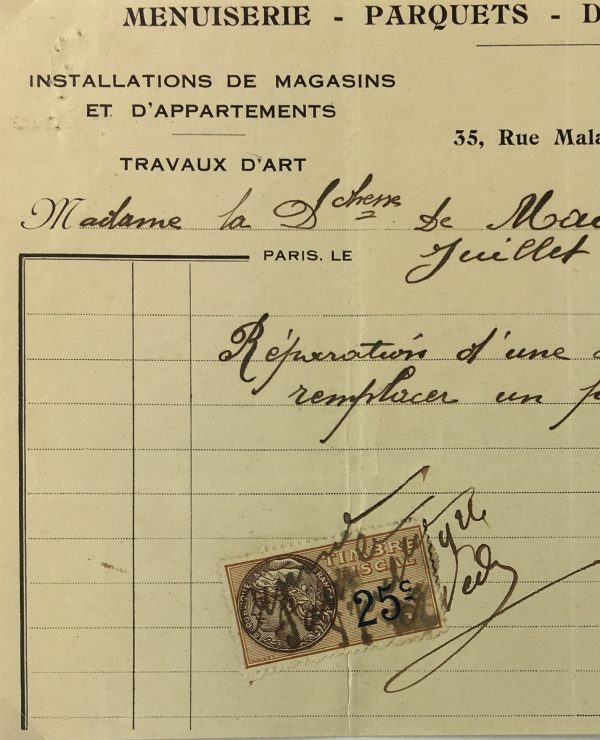 MENUISERIE - PARQUETS - D
INSTALLATIONS DE MAGASINS
ET D'APPARTEMENTS
35, Rue Mala
TRAVAUX D'ART
Madame la Dchesse de Mac
PARIS, LE
Juillet
Réparation d'une
remplacer un p
TIMBRE
FISCAL
25c
RÉPUBLIQUE FRANÇAISE